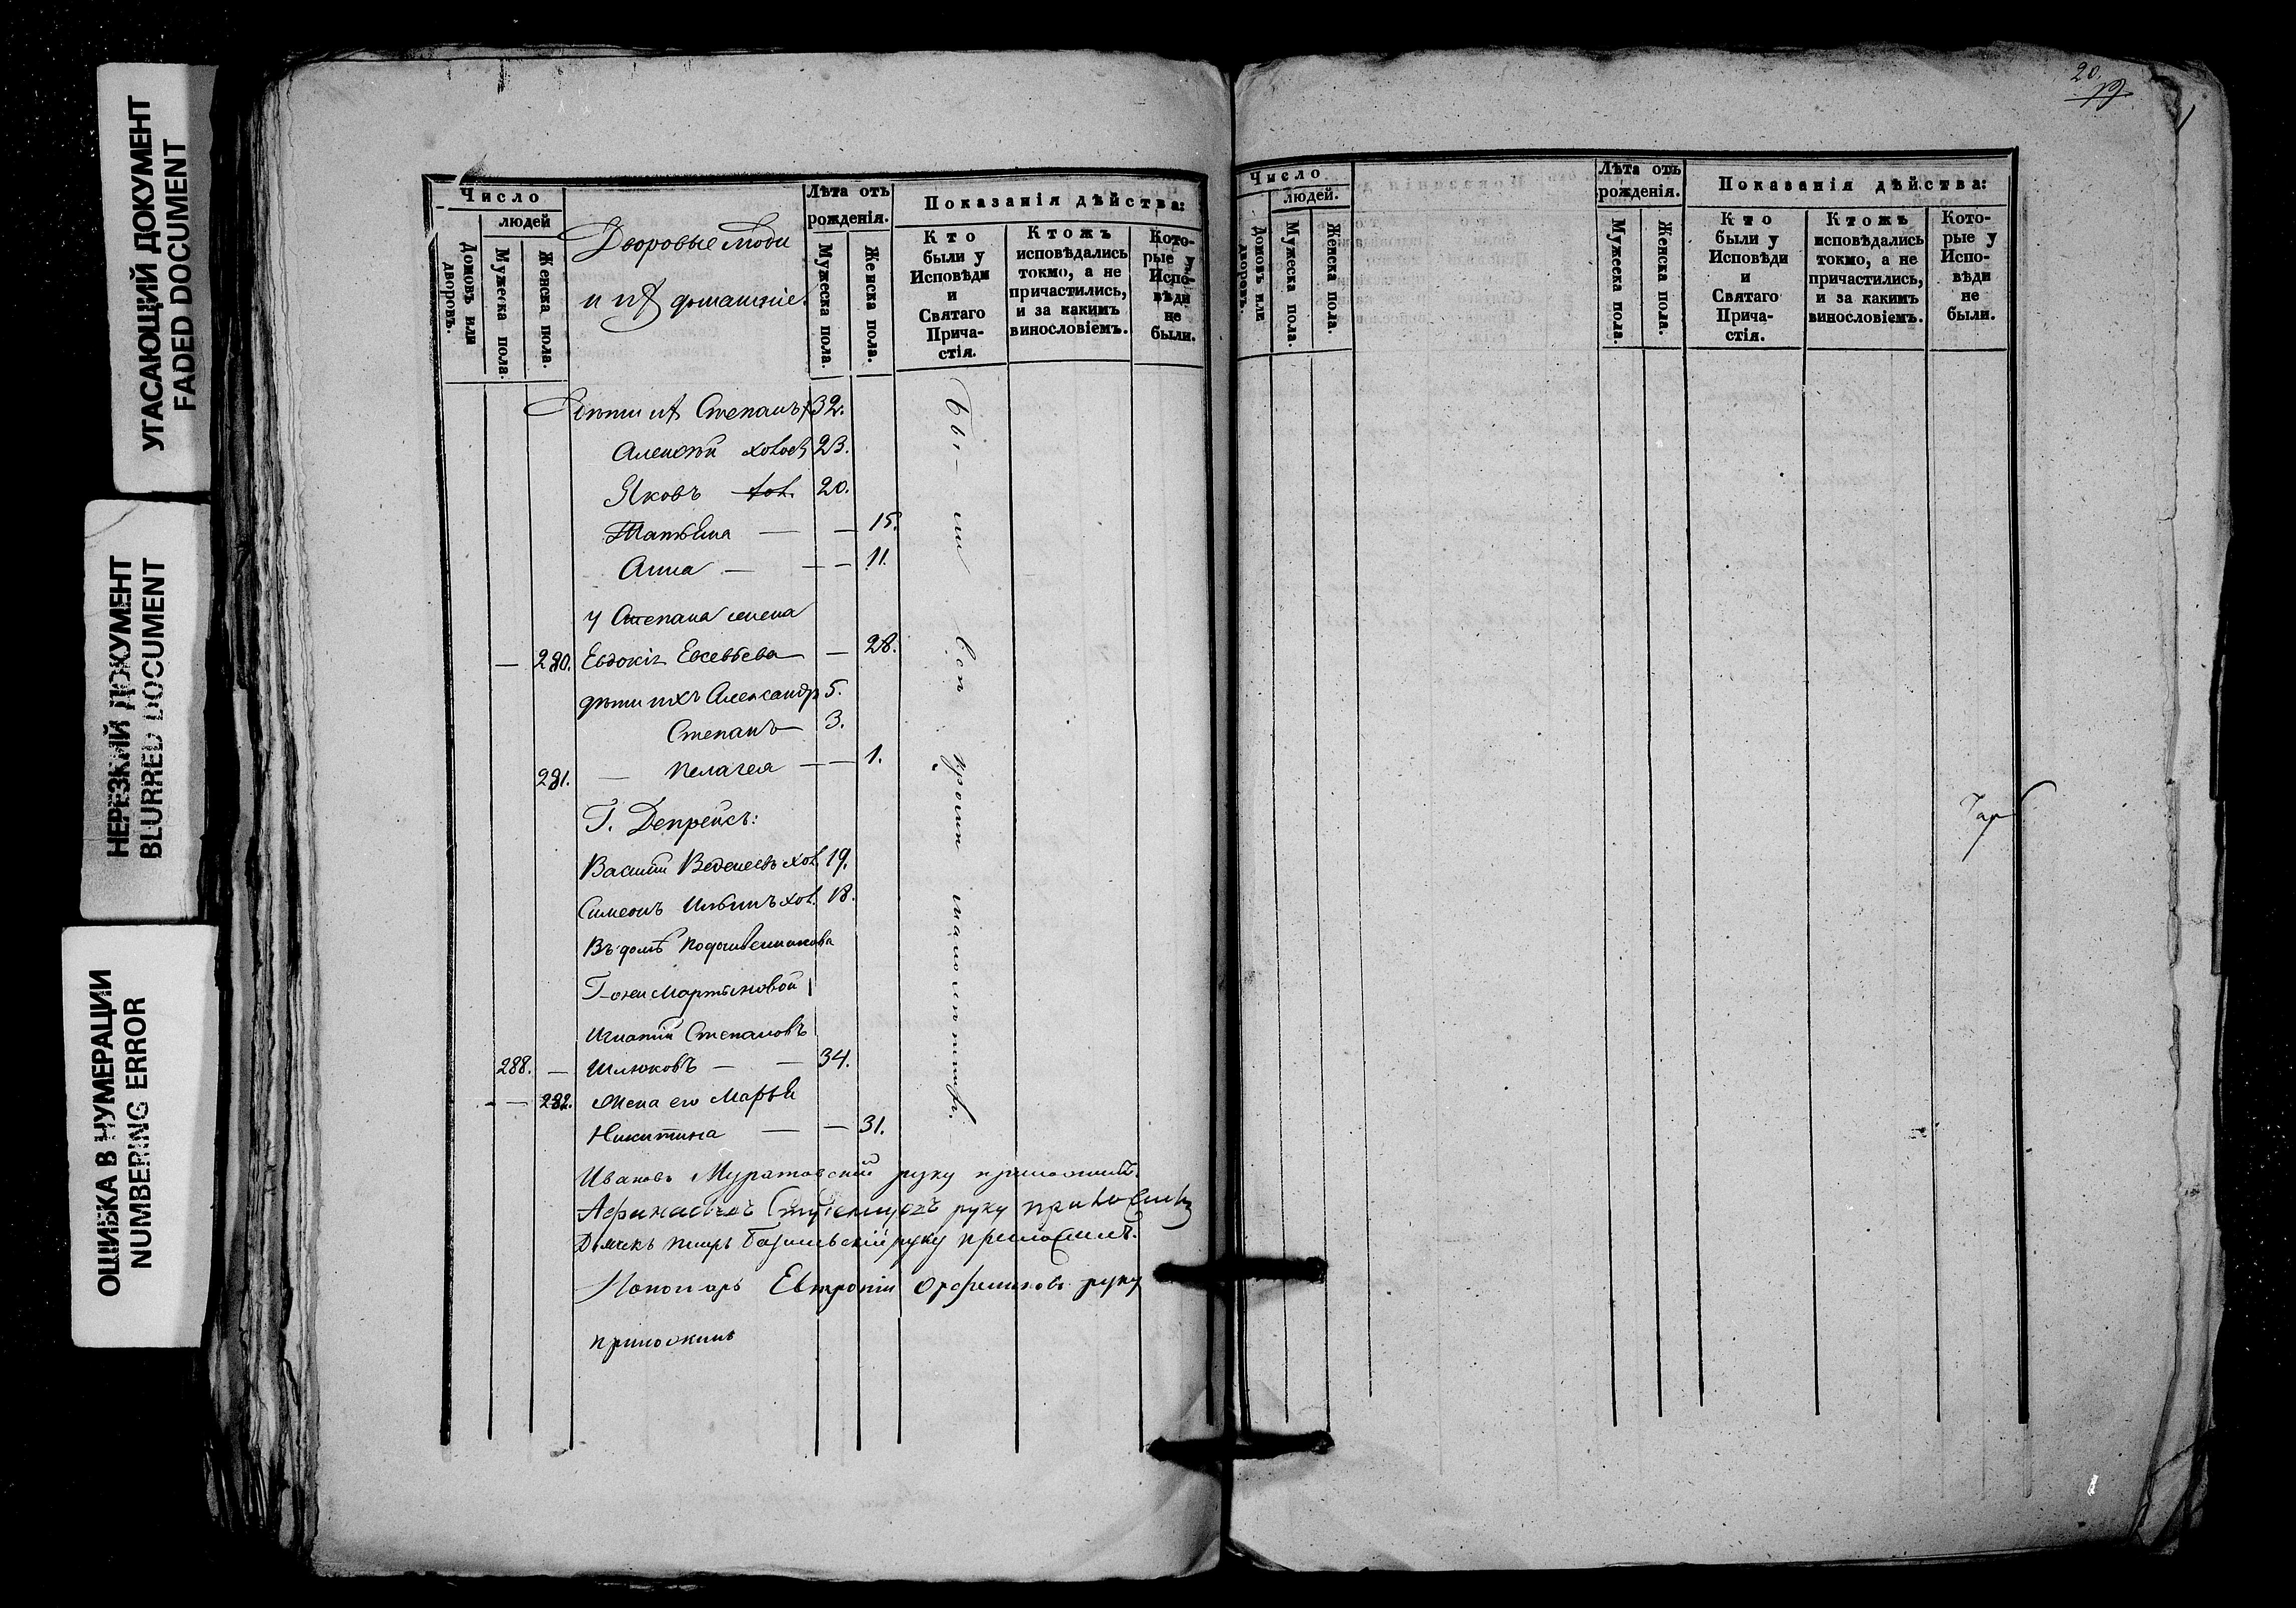 УГАСАЮЩИЙ ДОКУМЕНТ
FADED DOCUMENT
НЕРЕЗКИЙ ДОКУМЕНТ
BLURRED DOCUMENT
ОШИБКА В НУМЕРАЦИИ
NUMBERING ERROR
Число
людей
Домовъ или дворовъ.
Мужеска пола.
Женска пола.
Дворовые люди
и их домашніе.
Лѣта отъ рожденія.
Мужеска пола.
Женска пола.
Показанія дѣйства:
Кто были у Исповѣди и Святаго Прича-стія.
Ктожъ исповѣдались токмо, а не причастились, и за какимъ винословіемъ.
Кото-рые у Испо-вѣди не были.
Дѣти их Степанъ 32.
Алексѣй холос 23.
Яковъ хол. 20.
Татьяна — — 15.
Анна — — — 11.
у Степана жена
— 280. Евдокія Евсевьева — 28.
дѣти ихъ Александръ 5.
Степанъ — 3.
281. — Пелагея — — 1.
Г. Депрейсъ:
Василій Веденеевъ хол. 19.
Симеонъ Ильинъ хол. 18.
Въ домѣ
Г-жи Мартыновой
Игнатій Степановъ
288. — Шлюковъ — — 34.
— — 282. Жена его Марья
Никитина — — 31.
Бы — ли всѣ кромѣ малолѣтныхъ.
Ивановъ Муратовскій руку приложилъ.
руку приложилъ
Дьячекъ Петръ руку приложилъ.
Пономарь Евтропій руку
приложилъ
20
19
Число
людей.
Домовъ или дворовъ.
Мужеска пола.
Женска пола.
Лѣта отъ рожденія.
Мужеска пола.
Женска пола.
Показанія дѣйства:
Кто были у Исповѣди и Святаго Прича-стія.
Ктожъ исповѣдались токмо, а не причастились, и за какимъ винословіемъ.
Кото-рые у Испо-вѣди не были.